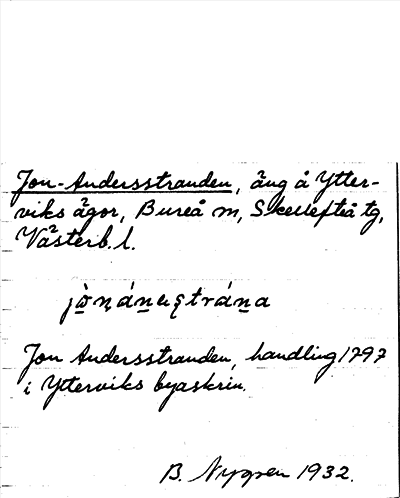 Jon-Andersstranden, äng å Ytter-
viks ägor, Bureå m, Skellefteå tg,
Västerb. l.
jò̱n̥án̲ɐʂtrán̲a
Jon Andersstranden, handling 1797
i Ytterviks byaskrin.
B. Nygren 1932.